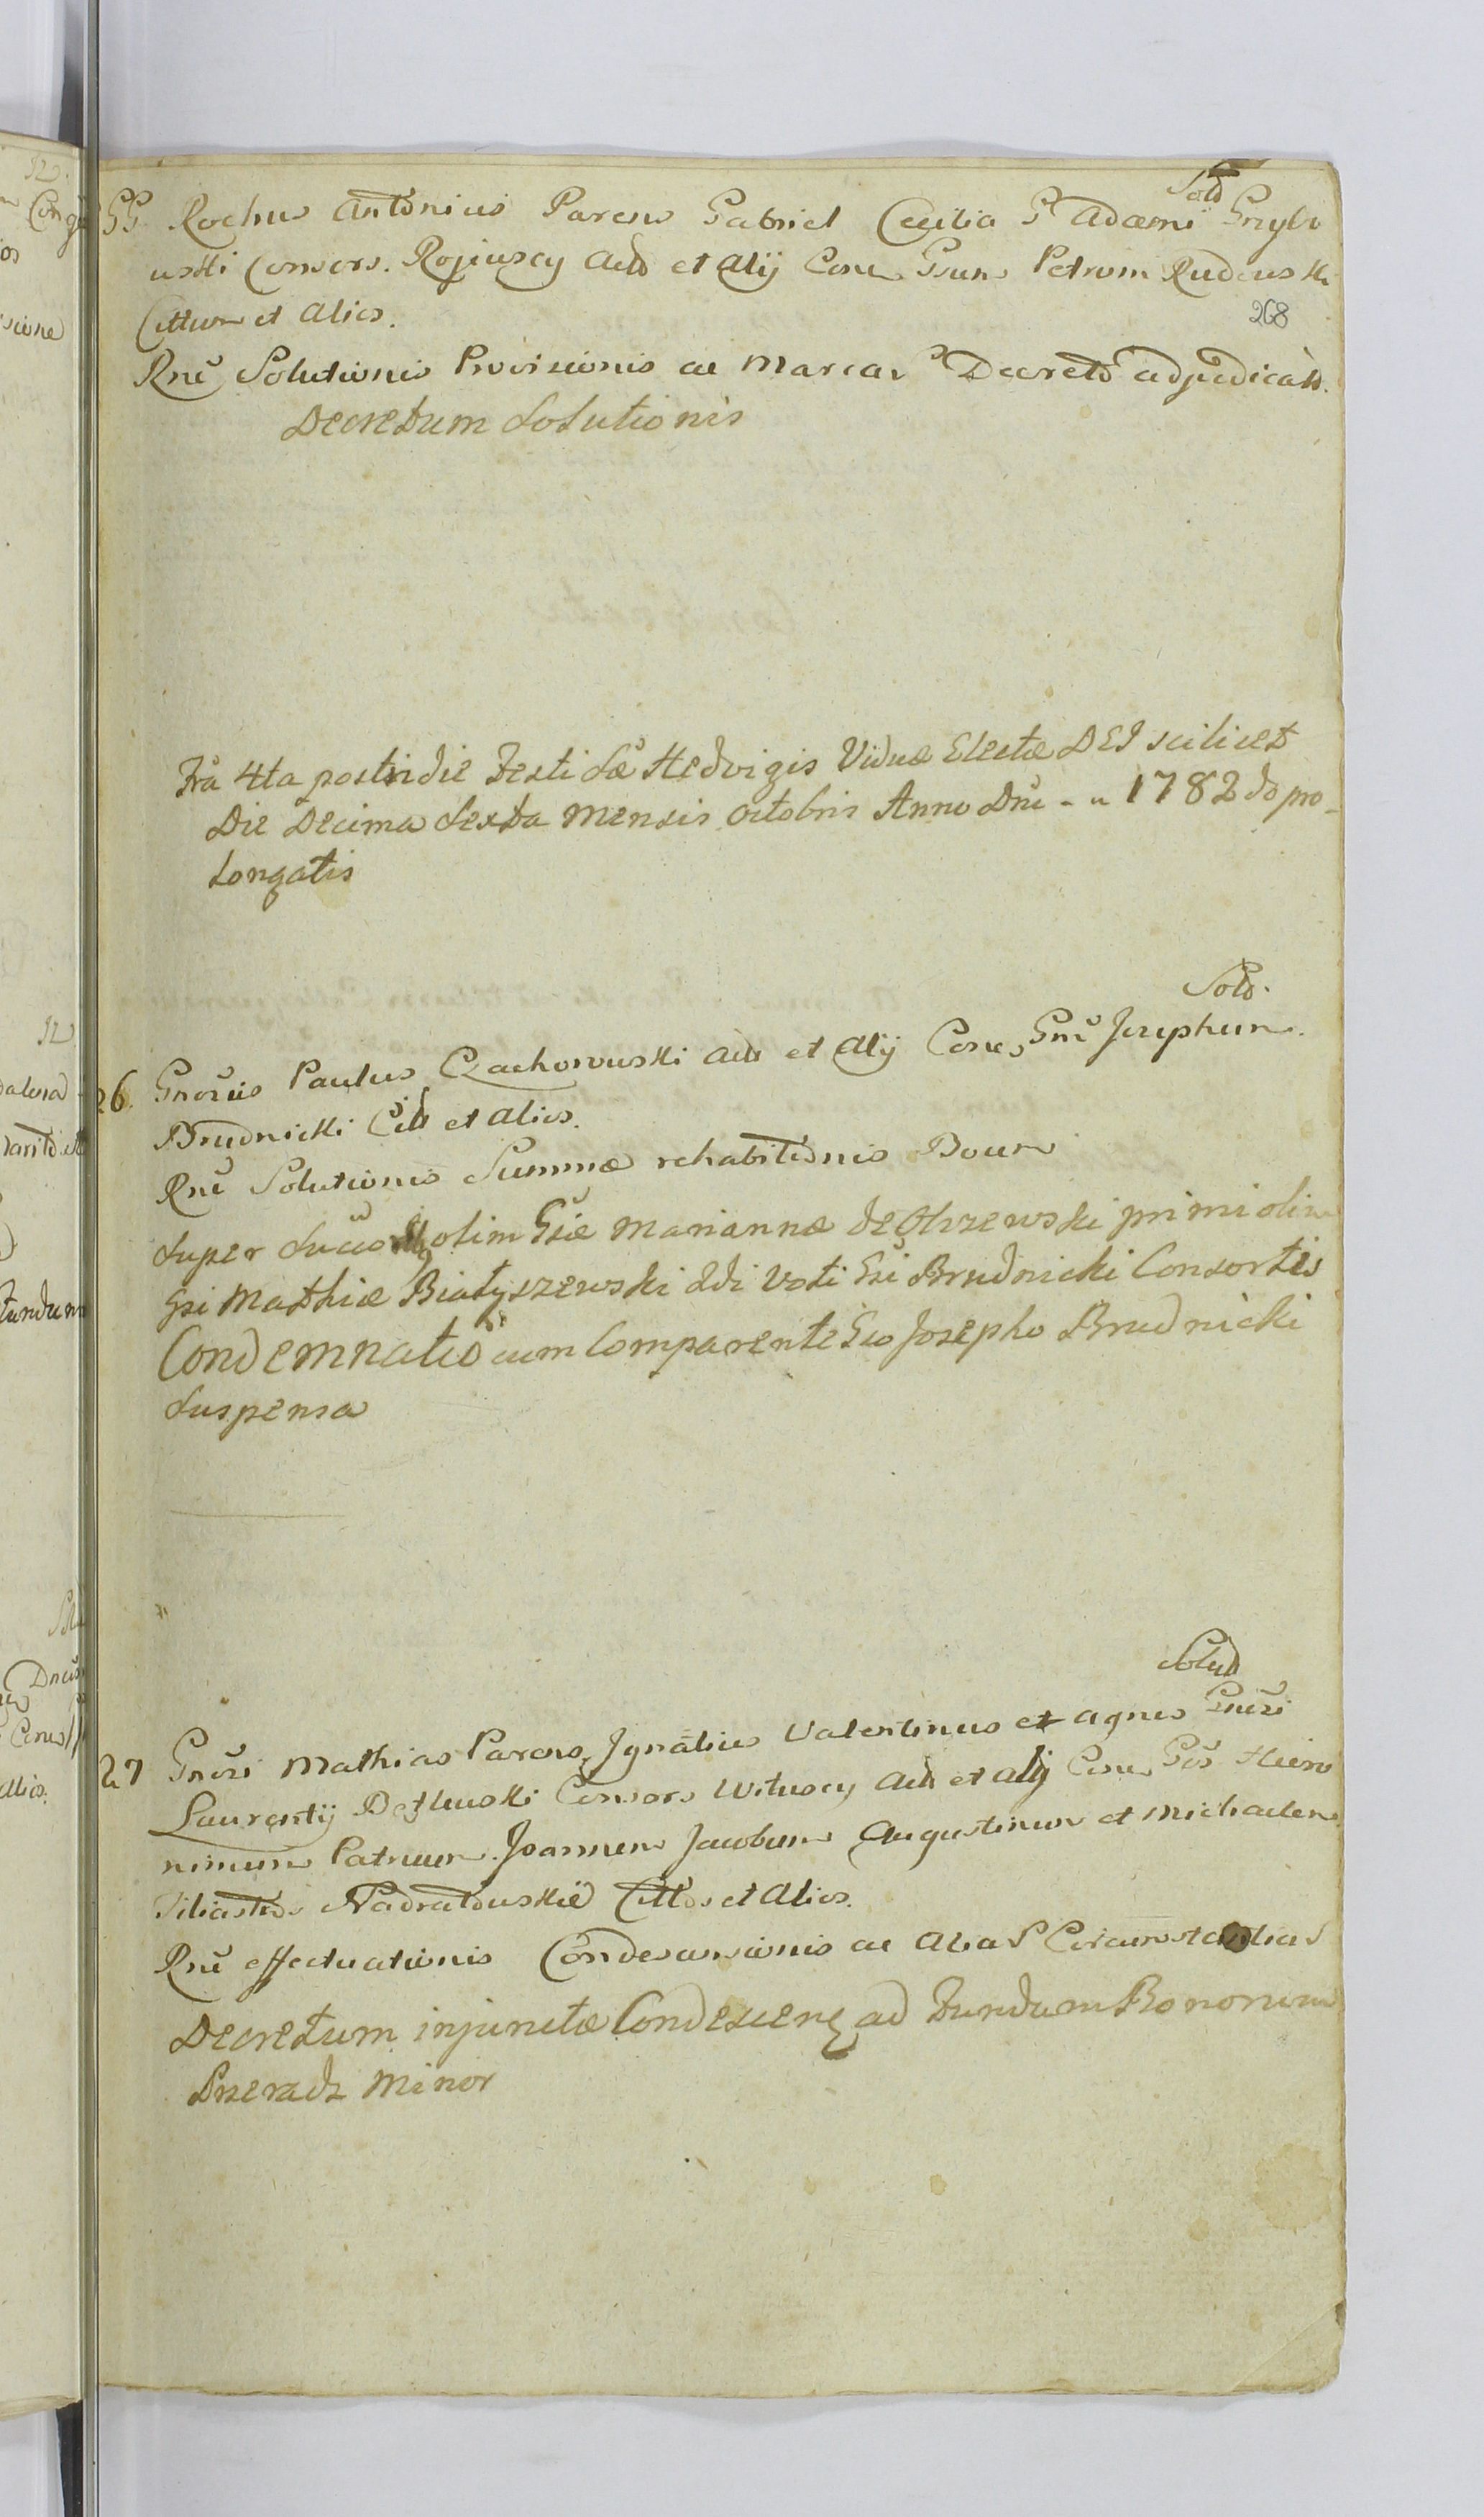 Sold
GG. Rochus Antonius Parens Gabriel Cecilia G Adami Grzybo
wski Consors. Rojewscy Act et Alij Cone Gsum Petrum Rudowski
Cittum et Alios.
268
Rne Solutionis Provisionis ac Marcar Decreto adjudicatt.
Decretum Solutionis
Fra 4ta postridie Festi Sae Hedvigis Viduae Electae DEI scilicet
Die Decima Sexta Mensis Octobris Anno Dni - " 1782do pro-
longatis
Sold.
26. Gnorus Paulus Czachorowski Act et Alij Cone Gnu Josephum
Brudnicki Citt et Alios.
Rne Solutionis Summae rehabitionis Boum
Super olim Gsae Mariannae de Olszewski primi olim
Gsi Mathiae Białyszewski 2di Voti Gsi Brudnicki Consortis
Condemnatio cum Comparente Gso Josepho Brudnicki
Suspensa
Solud
27 Gnori Mathias Parens, Ignatius Valentinus et Agnes Gnori
Laurentij Consors Witwscy Act et Alij Cone Gos Hiero
nimum Patruum. Joannem Jacobum Augustinum et Michaelem
Filiastros Nadratowskie Cittos et Alios.
Rne effectuationis Condescensionis ac Alias Circumstantias
Decretum injunctae Condescens ad Fundum Bonorum
Sieradz Minor